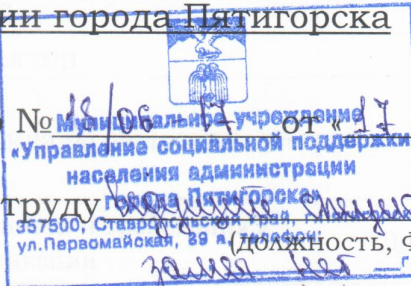 ии города Пятигорска
№ 18/06-17 от «17
Муниципальное учреждение
«Управление социальной поддержки
населения администрации
города Пятигорска»
труду
357500, Ставропольский край,
ул.Первомайская, 89 а, телефон:
(должность, ф